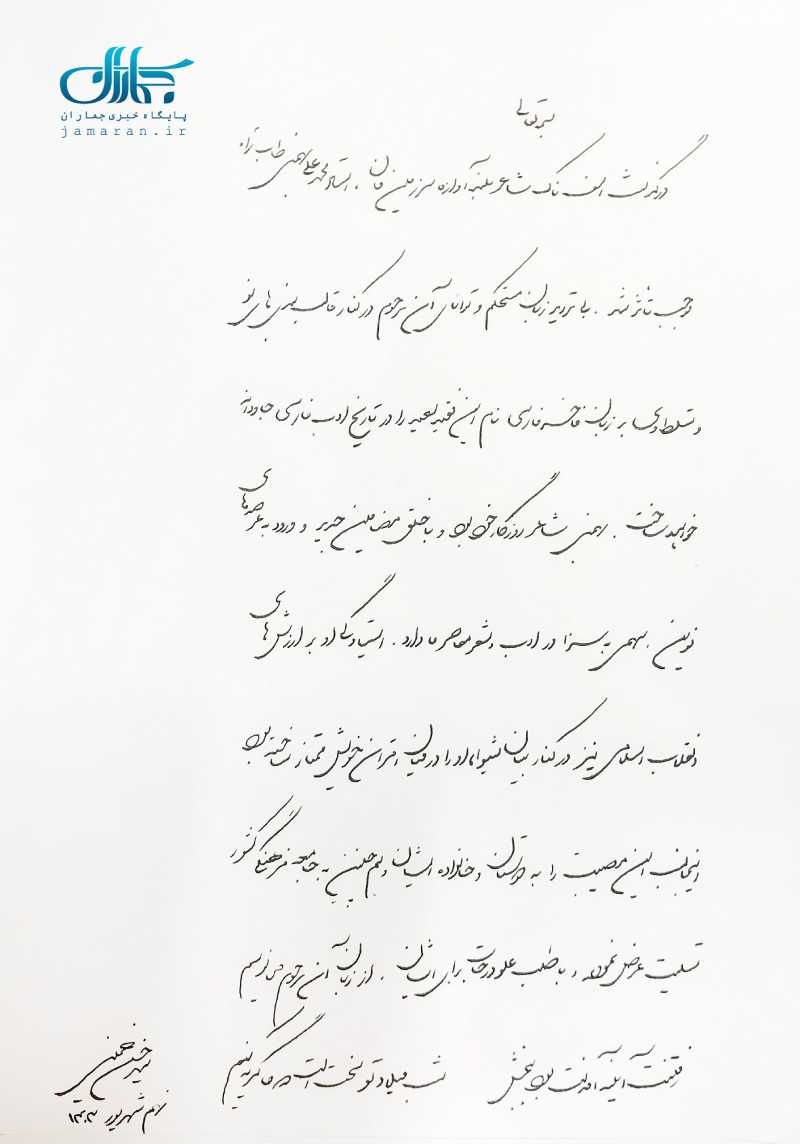 جماران
پایگاه خبری جماران
jamaran.ir
بسمه تعالی
درگذشت اسف ناک شاعر بلندآوازه سرزمین مان، استاد محمدعلی بهمنی طاب ثراه
موجب تأثر شد. بی تردید زبان مستحکم و توانای آن مرحوم در کنار قالب بندی های نو
و تسلط وی بر زبان فاخر فارسی نام این فقید سعید را در تاریخ ادب فارسی جاودانه
خواهد ساخت. بهمنی شاعر روزگار خود بود و با خلق مضامین جدید و ورود به عرصه های
نوین، سهمی به سزا در ادب و شعر معاصر ما دارد. ایستادگی او بر ارزش های
انقلاب اسلامی نیز در کنار بیان شیوا، او را در میان اقران خویش ممتاز ساخته بود
اینجانب این مصیبت را به دوستان و خانواده ایشان و هم چنین به جامعه فرهنگی کشور
تسلیت عرض نموده و با طلب علو درجات برای ایشان، از زبان آن مرحوم می نویسم
رفتنت آینه آمدنت بود ببخش
شب میلاد تو تلخ است که ما گریه کنیم
سید حسن خمینی
نهم شهریور ۱۴۰۳